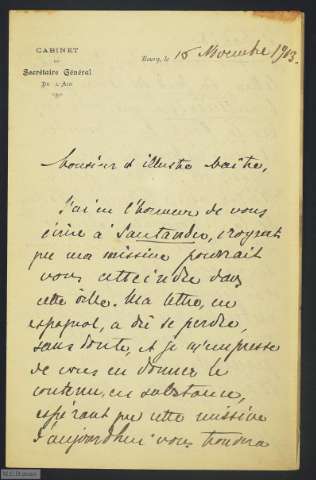 CABINET
DU
Secrétaire Général
DE L'AIN
Bourg, le 15 Novembre 1903.
Monsieur et illustre Maître,
J'ai eu l'honneur de vous
écrire à Santander, croyant
que ma missive pourrait
vous atteindre dans
cette ville. Ma lettre, en
espagnol, a dû se perdre,
sans doute, et je m'empresse
de vous en donner le
contenu, en substance,
espérant que cette missive
d'aujourd'hui vous trouvera